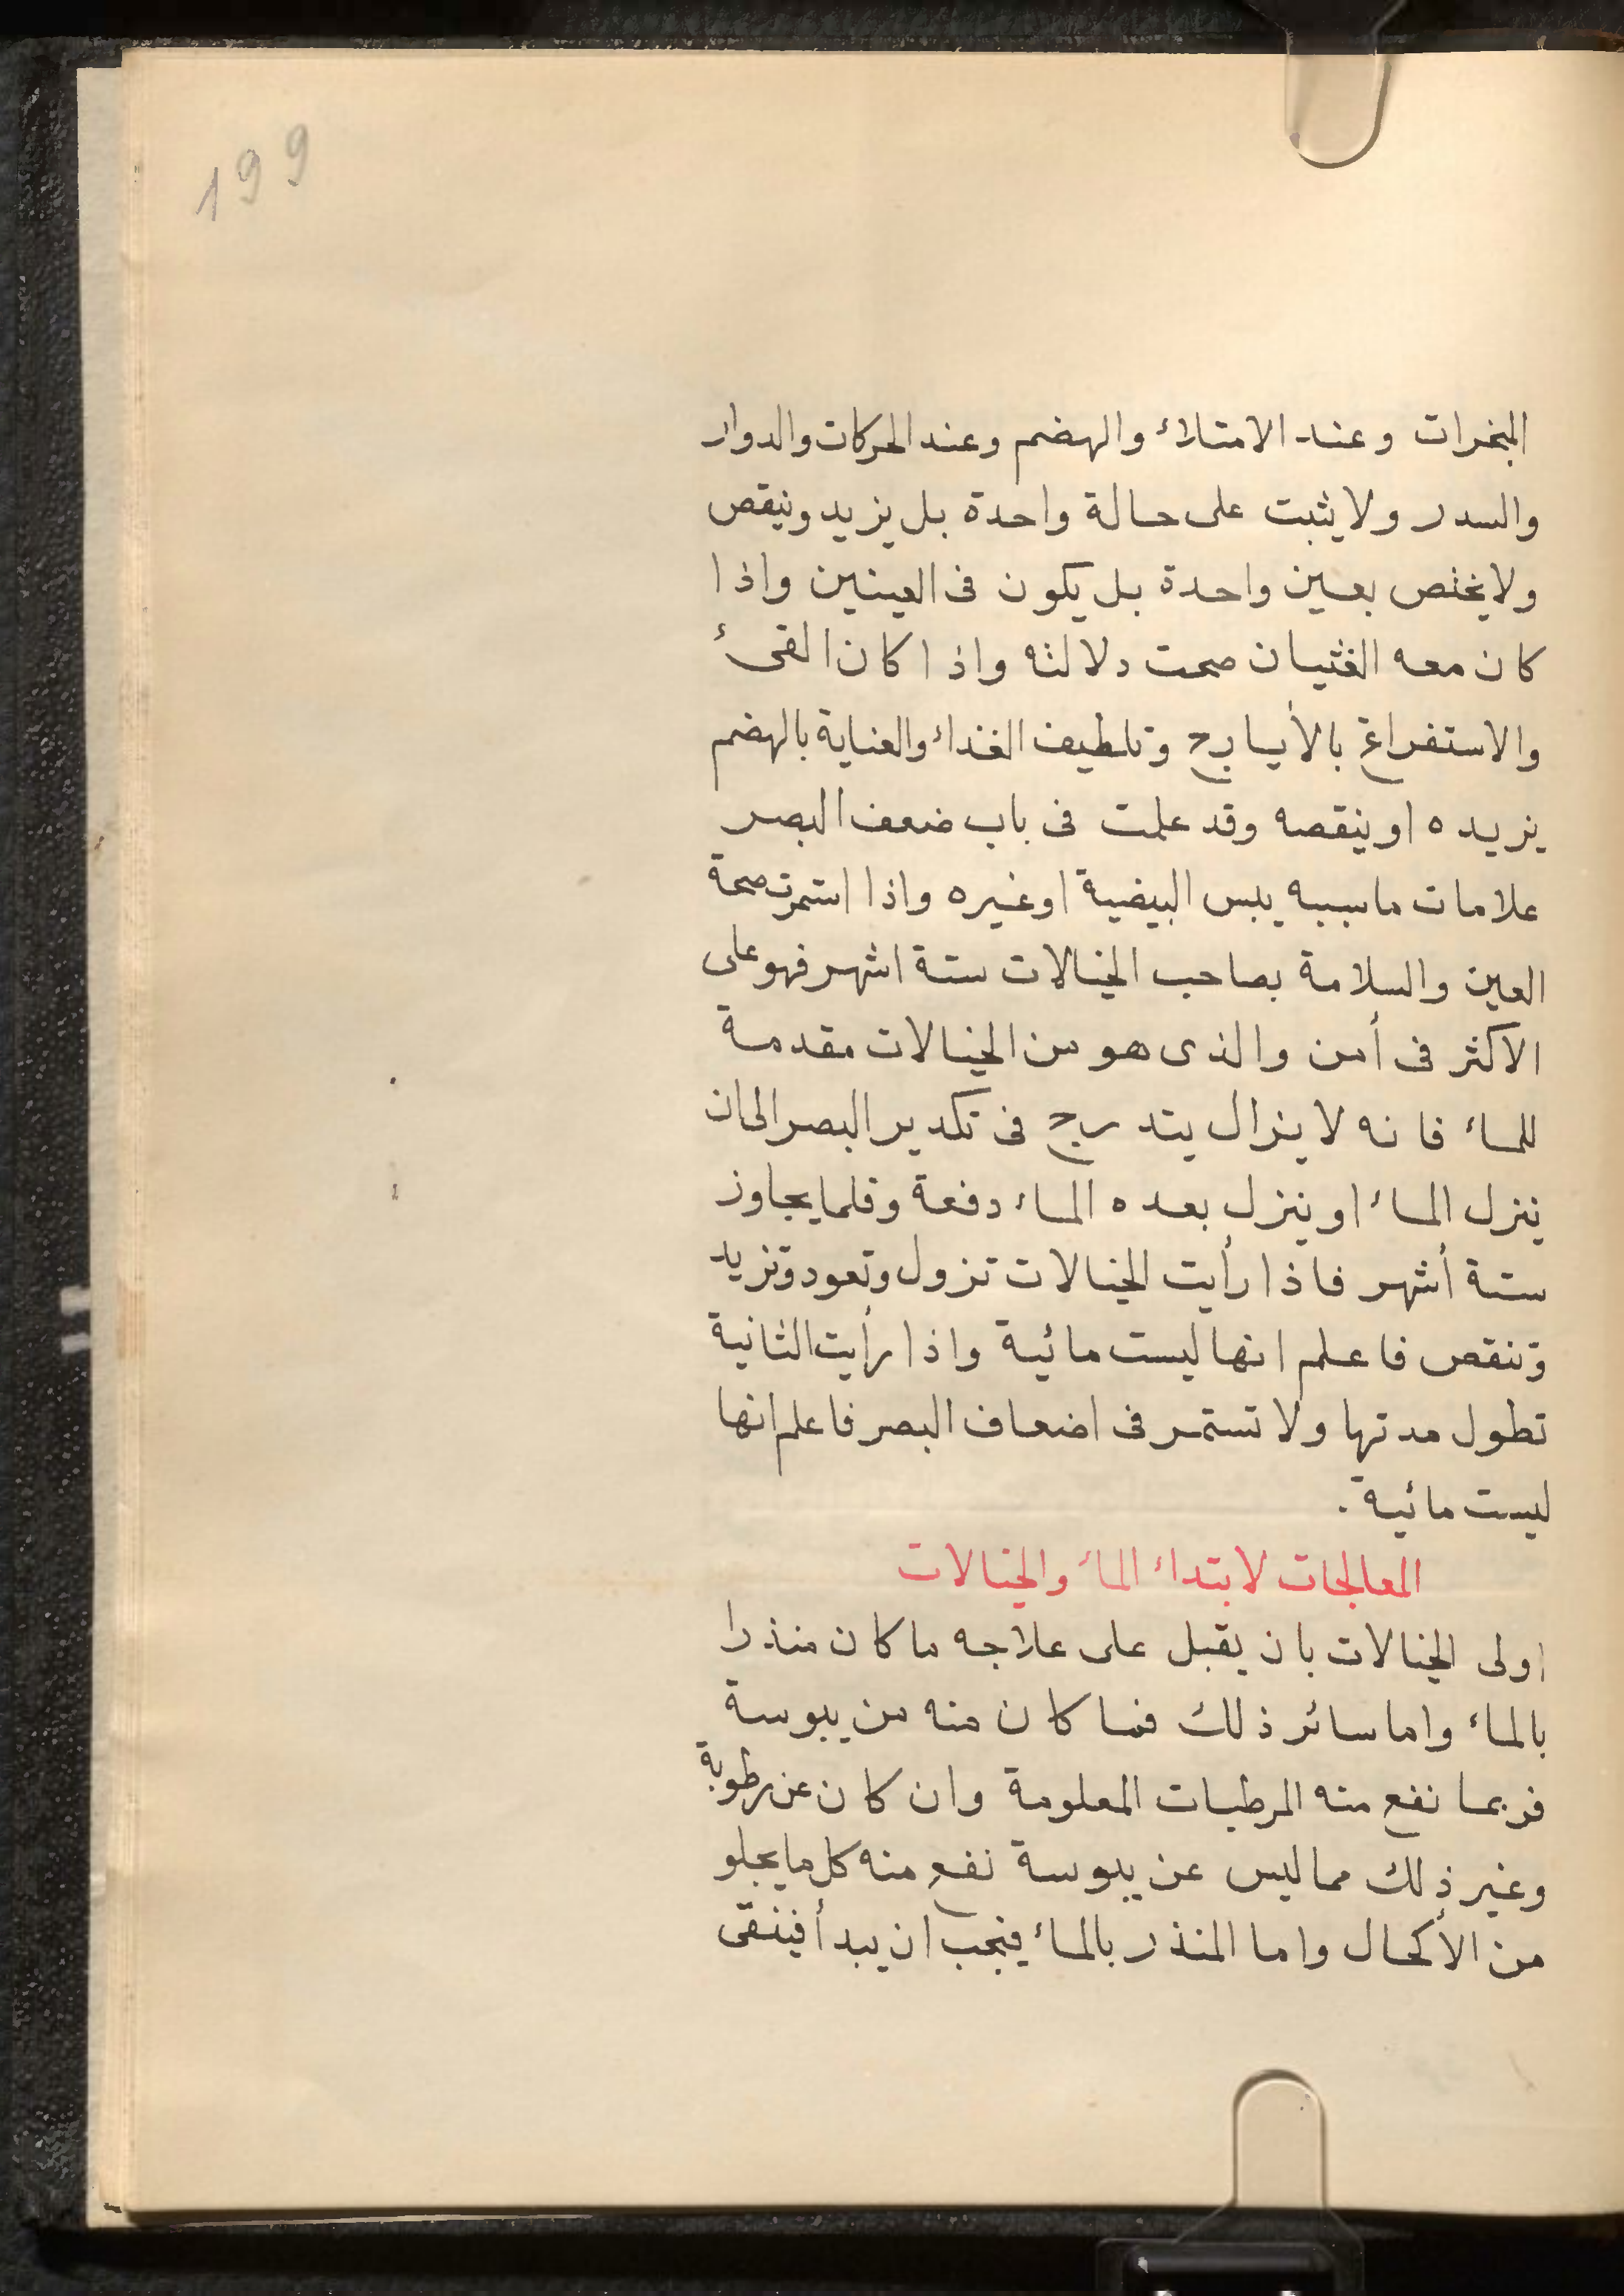 199
المبخرات وعند الامتلاء والهضم وعند الحركات والدوار
والسدر ولا يثبت على حالة واحدة بل يزيد وينقص
ولا يختص بعين واحدة بل يكون فى العينين واذا
كان معه الغثيان صحت دلالته واذا كان القىء
والاستفراغ بالأيارج وتلطيف الغذاء والعناية بالهضم
يزيده او ينقصه وقد علمت فى باب ضعف البصر
علامات ما سببه يبس البيضية او غيره واذا استمرت صحة
العين والسلامة بصاحب الخيالات ستة اشهر فهو على
الاكثر فى أمن والذى هو من الخيالات مقدمة
للماء فانه لا يزال يتدرج فى تكدير البصر الى ان
ينزل الماء او ينزل بعده الماء دفعة وقلما يجاوز
ستة أشهر فاذا رأيت الخيالات تزول وتعود وتزيد
وتنقص فاعلم انها ليست مائية واذا رأيت الثانية
تطول مدتها ولا تستمر فى اضعاف البصر فاعلم انها
ليست مائية .
المعالجات لابتداء الماء والخيالات
اولى الخيالات بان يقبل على علاجه ما كان منذرا
بالماء واما سائر ذلك فما كان منه من يبوسة
فربما نفع منه المرطبات المعلومة وان كان عن رطوبة
وغير ذلك مما ليس عن يبوسة نفع منه كل ما يجلو
من الأكحال واما المنذر بالماء فيجب ان يبدأ فينقى